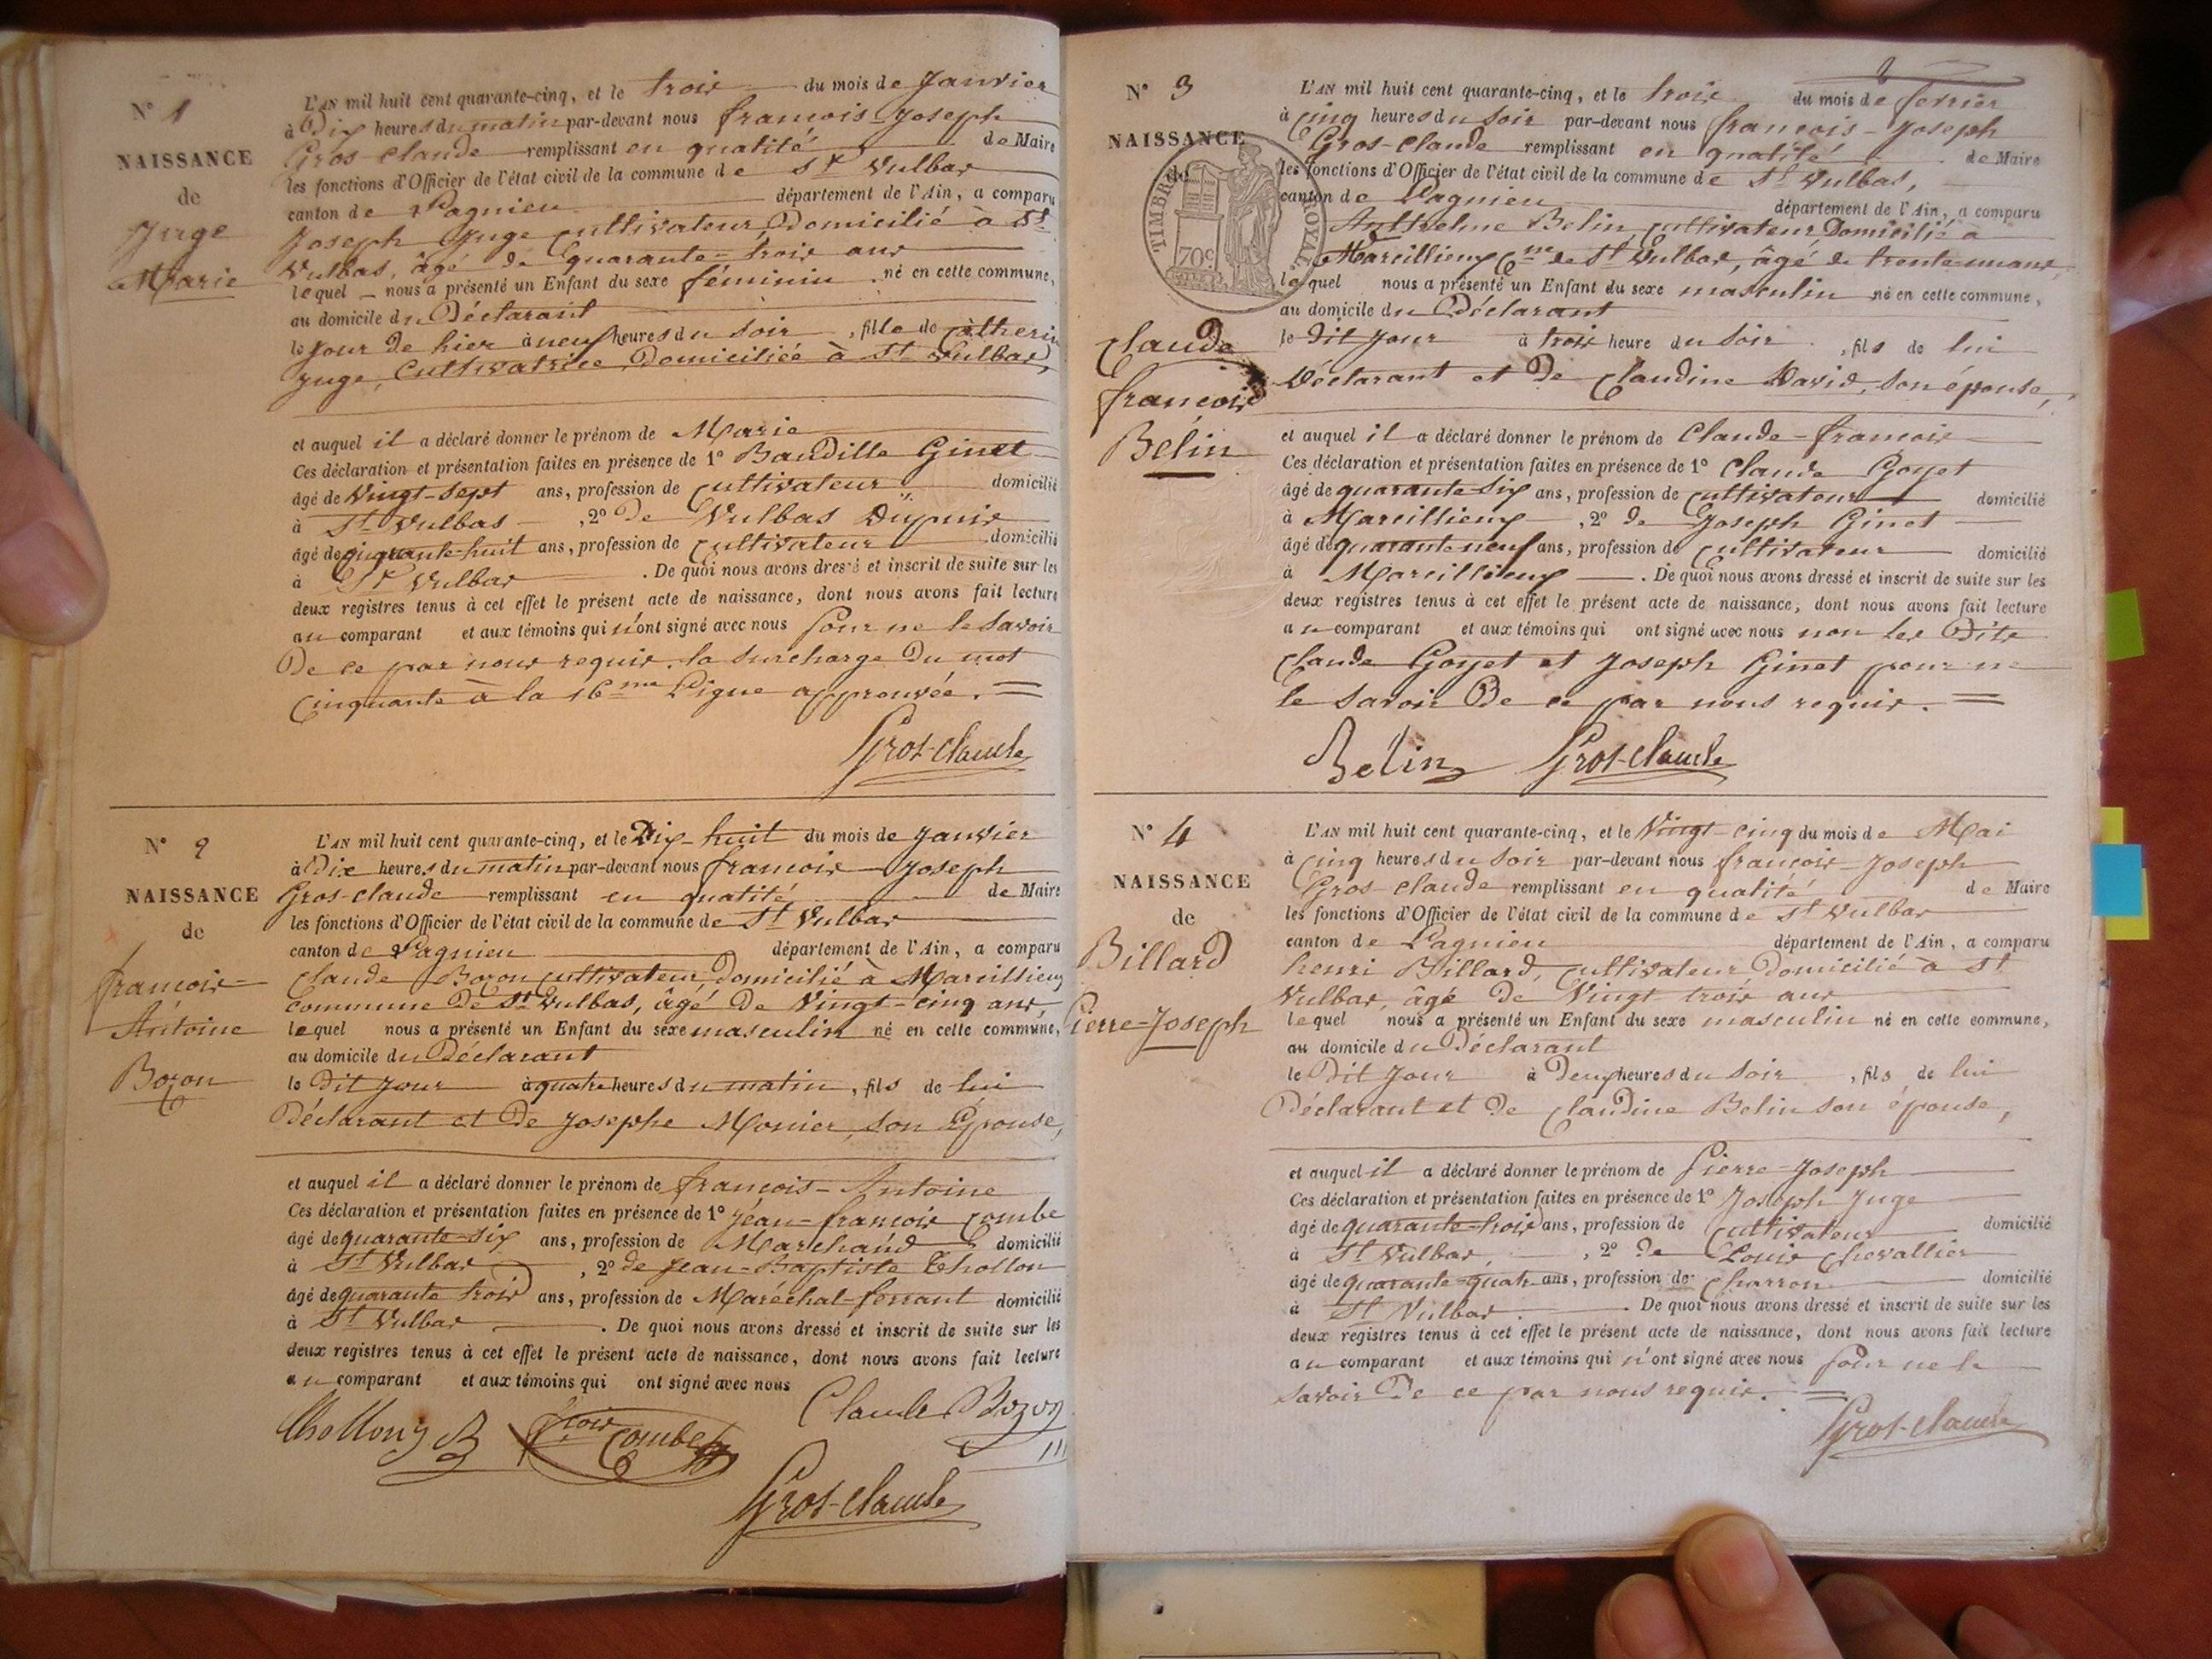 N° 1
NAISSANCE
de
Juge
Marie
L'AN mil huit cent quarante-cinq, et le trois du mois de Janvier
à Dix heures du matin par-devant nous francois Joseph
Gros-claude remplissant en qualité de Maire
les fonctions d'Officier de l'état civil de la commune de St Vulbas
canton de Lagnieu département de l'Ain, a comparu
Joseph Juge cultivateur Domicilié à St
Vulbas, âgé de quarante-trois ans
lequel nous a présenté un Enfant du sexe féminin né en cette commune,
au domicile du Déclarant
le jour de hier à neuf heures du soir, fille de Catherin
Juge, Cultivatrice, Domiciliée à St Vulbas,
et auquel il a déclaré donner le prénom de Marie
Ces déclaration et présentation faites en présence de 1° Baudille Ginet
âgé de Vingt-Sept ans, profession de cultivateur domicilié
à St Vulbas, 2° de Vulbas Dupuis
âgé de cinquante-huit ans, profession de cultivateur domicilié
à St Vulbas. De quoi nous avons dressé et inscrit de suite sur les
deux registres tenus à cet effet le présent acte de naissance, dont nous avons fait lecture
au comparant et aux témoins qui n'ont signé avec nous pour ne le savoir
De ce par nous requis. la surcharge Du mot
Cinquante à la 16me Ligne approuvée. =
Gros-claude
N° 2
NAISSANCE
de
francois-
Antoine
Bozon
L'AN mil huit cent quarante-cinq, et le Dix-huit du mois de Janvier
à Dix heures du matin par-devant nous francois-Joseph
Gros-claude remplissant en qualité de Maire
les fonctions d'Officier de l'état civil de la commune de St Vulbas
canton de Lagnieu département de l'Ain, a comparu
Claude Bozon cultivateur, domicilié à Marcillieux
commune De St Vulbas, âgé De Vingt-cinq ans,
lequel nous a présenté un Enfant du sexe masculin né en cette commune,
au domicile du Déclarant
le Dit Jour à quatre heures du matin, fils de lui
Déclarant et De Josephe Monier, son Epouse,
et auquel il a déclaré donner le prénom de francois-Antoine
Ces déclaration et présentation faites en présence de 1° Jean-francois Combe
âgé de quarante-six ans, profession de Marchand domicilié
à St Vulbas, 2° de Jean-Baptiste Thollon
âgé de quarante trois ans, profession de Maréchal-ferrant domicilié
à St Vulbas. De quoi nous avons dressé et inscrit de suite sur les
deux registres tenus à cet effet le présent acte de naissance, dont nous avons fait lecture
au comparant et aux témoins qui ont signé avec nous
Claude Bozon
Thollon JB Combe
Gros-claude
N° 3
NAISSANCE
de
TIMBRE ROYAL
70c
Claude
francois
Belin
L'AN mil huit cent quarante-cinq, et le trois du mois de fevrier
à cinq heures du soir par-devant nous francois-Joseph
Gros-claude remplissant en qualité de Maire
les fonctions d'Officier de l'état civil de la commune de St Vulbas,
canton de Lagnieu département de l'Ain, a comparu
Anthelme Belin, cultivateur Domicilié à
Marcillieux Cne de St Vulbas, âgé de trente-un ans
lequel nous a présenté un Enfant du sexe masculin né en cette commune,
au domicile du Déclarant
le dit jour à trois heure du soir, fils de lui
Déclarant et De Claudine David, son épouse,
et auquel il a déclaré donner le prénom de Claude-francois
Ces déclaration et présentation faites en présence de 1° Claude Goyet
âgé de quarante-six ans, profession de cultivateur domicilié
à Marcillieux, 2° de Joseph Ginet
âgé de quarante neuf ans, profession de cultivateur domicilié
à Marcillieux. De quoi nous avons dressé et inscrit de suite sur les
deux registres tenus à cet effet le présent acte de naissance, dont nous avons fait lecture
au comparant et aux témoins qui ont signé avec nous non les Dits
Claude Goyet et Joseph Ginet pour ne
le savoir De ce par nous requis. =
Belin Gros-claude
N° 4
NAISSANCE
de
Billard
Pierre-Joseph
L'AN mil huit cent quarante-cinq, et le Vingt-cinq du mois de Mai
à cinq heures du soir par-devant nous francois-Joseph
Gros-claude remplissant en qualité de Maire
les fonctions d'Officier de l'état civil de la commune de St Vulbas
canton de Lagnieu département de l'Ain, a comparu
henri Billard, cultivateur, Domicilié à St
Vulbas, âgé De Vingt trois ans
lequel nous a présenté un Enfant du sexe masculin né en cette commune,
au domicile du Déclarant
le Dit Jour à Deux heures du soir, fils de lui
Déclarant et De Claudine Belin son épouse,
et auquel il a déclaré donner le prénom de Pierre-Joseph
Ces déclaration et présentation faites en présence de 1° Joseph Juge
âgé de quarante-trois ans, profession de cultivateur domicilié
à St Vulbas, 2° De Louis Chevallier
âgé de quarante-quatre ans, profession de charron domicilié
à St Vulbas. De quoi nous avons dressé et inscrit de suite sur les
deux registres tenus à cet effet le présent acte de naissance, dont nous avons fait lecture
au comparant et aux témoins qui n'ont signé avec nous pour ne le
savoir De ce par nous requis. =
Gros-claude